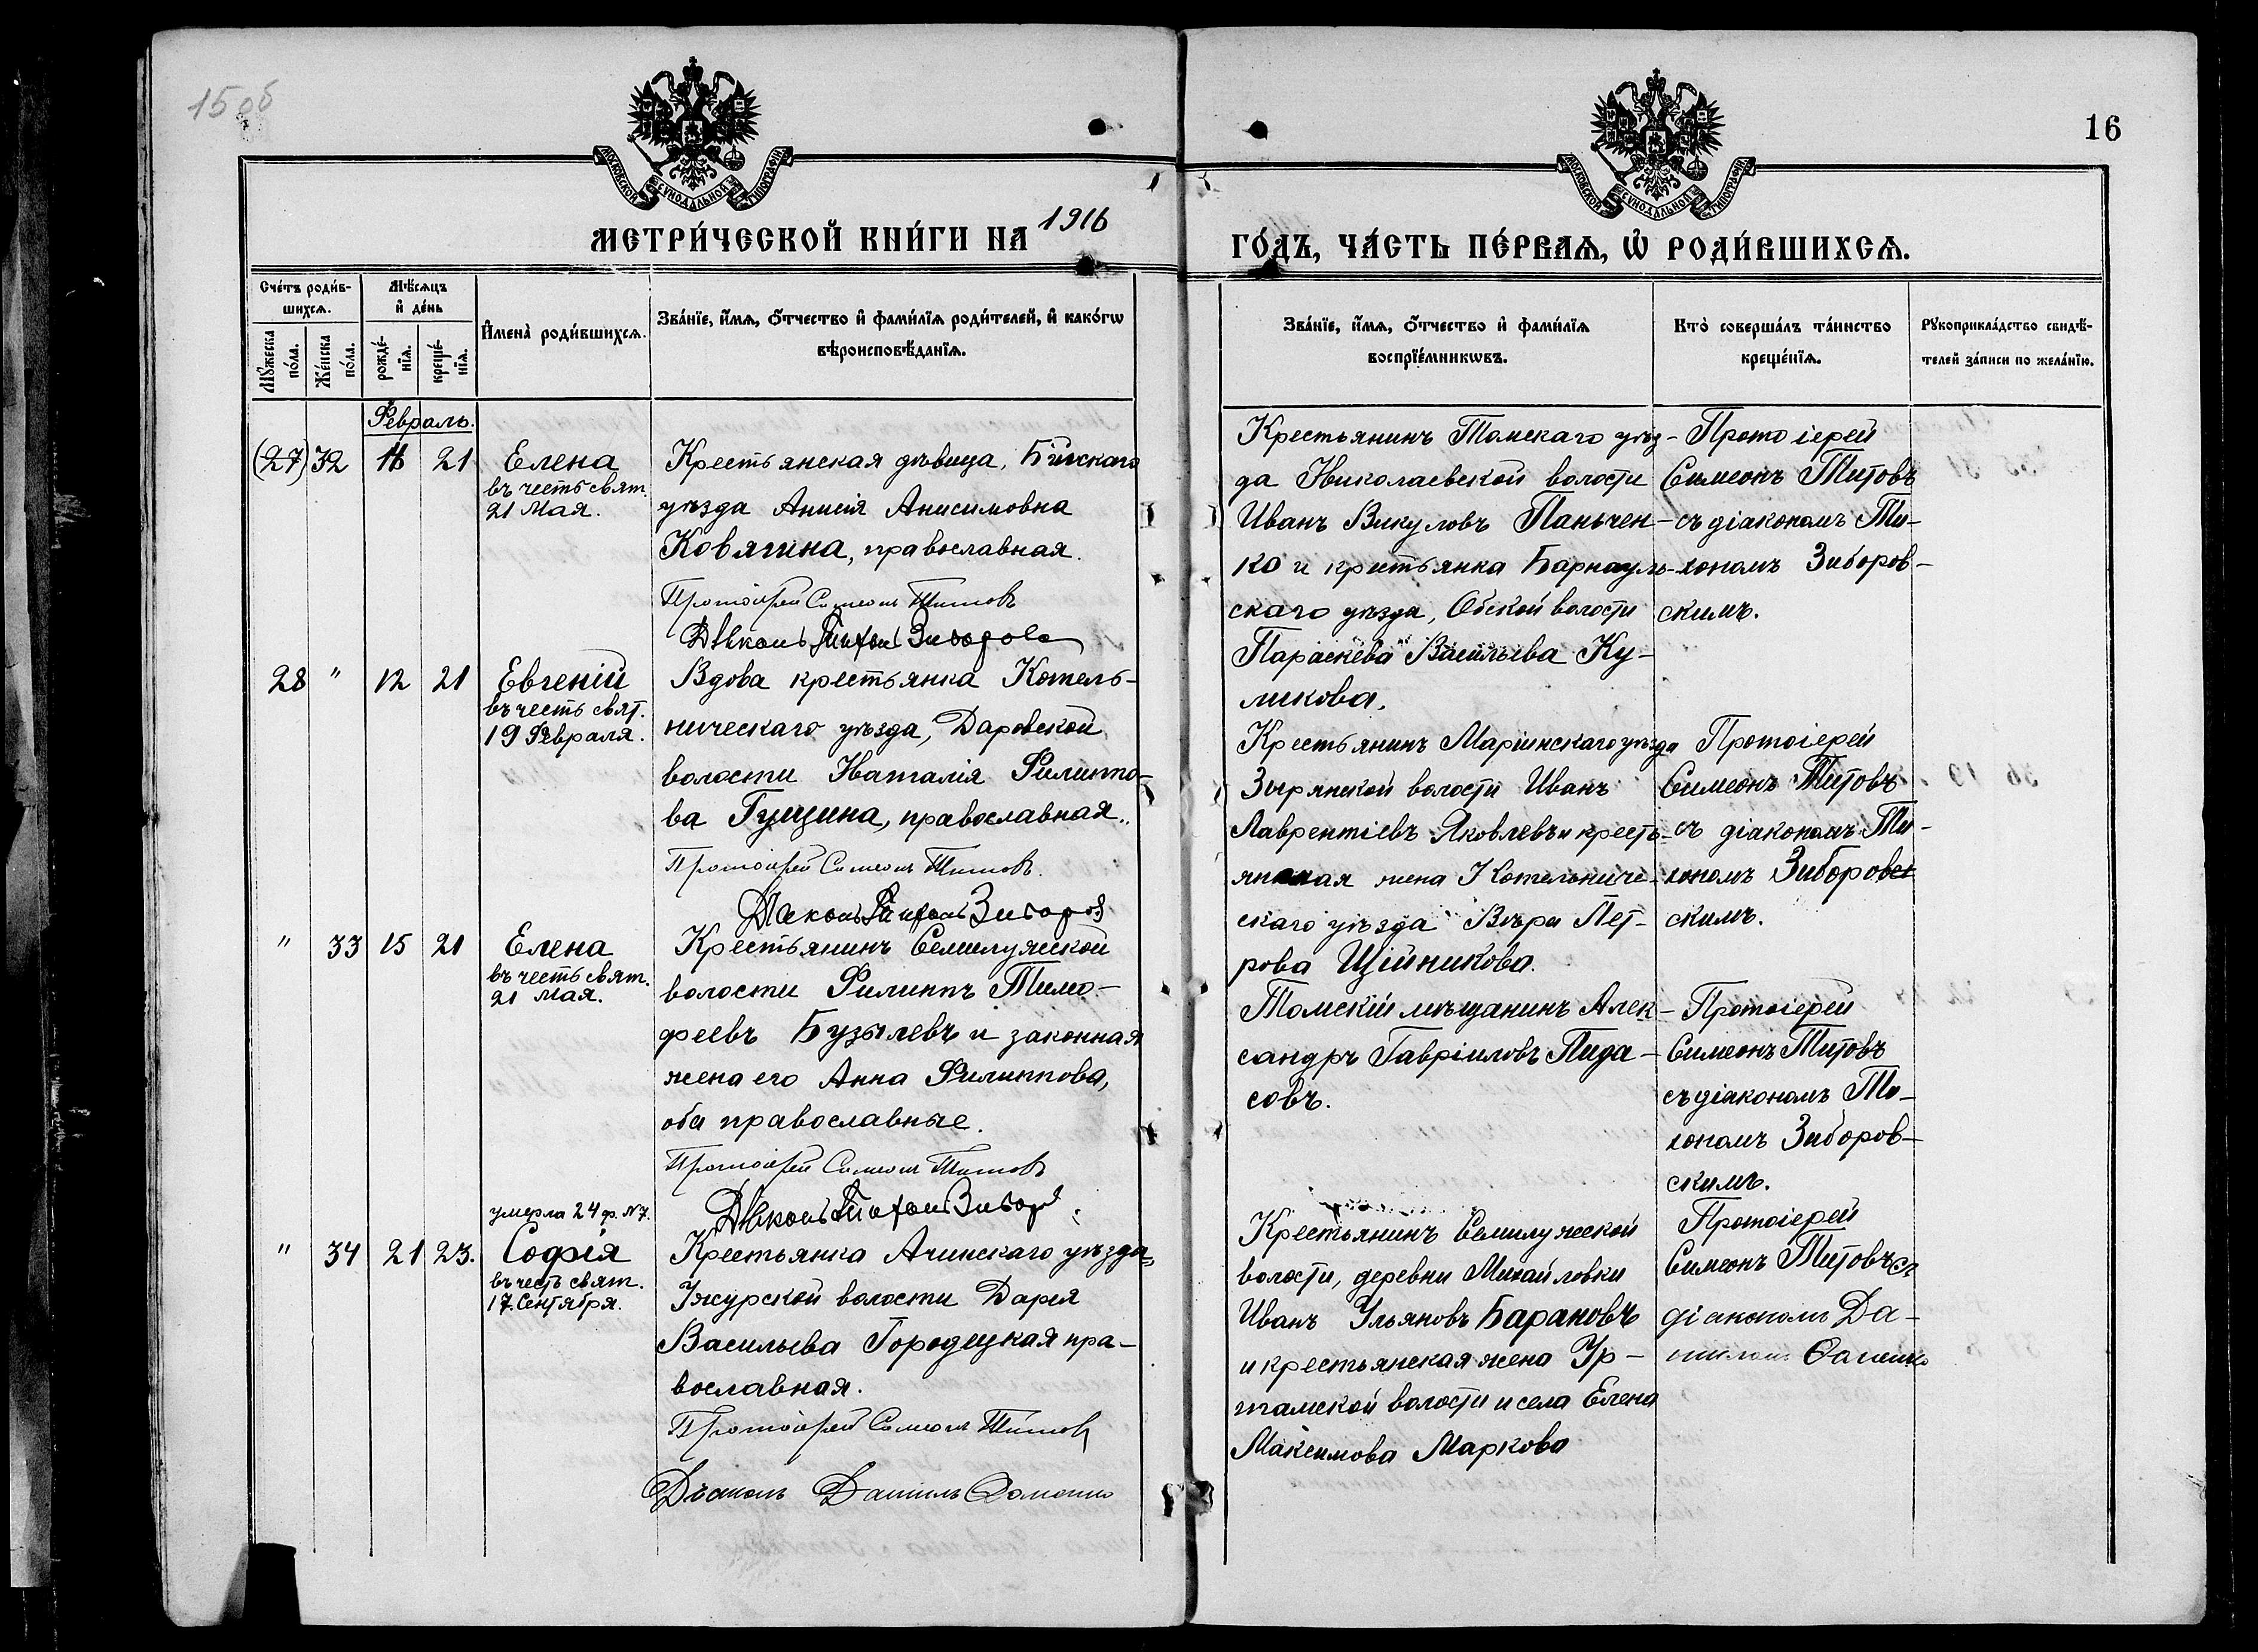 15 об
16
МОСКОВСКОЙ СѴНОДАЛЬНОЙ ТИПОГРАФІИ
МОСКОВСКОЙ СѴНОДАЛЬНОЙ ТИПОГРАФІИ
МЕТРИ́ЧЕСКОЙ КНИ́ГИ НА 1916
ГО́ДЪ, ЧА́СТЬ ПЕ́РВАЯ, Ѡ҆ РОДИ́ВШИХСЯ.
Сче́тъ роди́в-
шихся.
Му́жеска по́ла.
Же́нска по́ла.
Мѣ́сяцъ
и҆ де́нь
рожде́-
нїя.
креще́-
нїя.
И҆мена̀ роди́вшихся.
Зва́нїе, и҆́мя, ѻ҆́тчество и҆ фами́лїя роди́телей, и҆ како́гѡ
вѣроисповѣ́данїя.
Зва́нїе, и҆́мя, ѻ҆́тчество и҆ фами́лїя
воспрїе́мникѡвъ.
Кто̀ соверша́лъ та́инство
креще́нїя.
Рꙋкоприкла́дство свидѣ́-
телей за́писи по жела́нїю.
Февраль.
(27) 32
21
Елена
въ честь свят.
21 Мая.
Крестьянская дѣвица, Бійскаго
уѣзда Анисія Анисимовна
Ковягина, православная.
Протоіерей Симеонъ Титовъ
Діаконъ Тихонъ Зиборовс
Крестьянинъ Томскаго уѣз-
да Николаевской волости
Иванъ Викуловъ Паньчен-
ко и крестьянка Барнауль-
скаго уѣзда, Обской волости
Параскева Васильева Ку-
ликова.
Протоіерей
Симеонъ Титовъ
съ діакономъ Ти-
хономъ Зиборов-
скимъ.
28 " 12 21
Евгеній
въ честь свят.
19 Февраля.
Вдова крестьянка Котель-
ническаго уѣзда, Даровской
волости Наталія Филиппо-
ва Гущина, православная.
Протоіерей Симеонъ Титовъ.
Діаконъ Тихонъ Зиборов
Крестьянинъ Маріинскаго уѣзда
Зырянской волости Иванъ
Лаврентіевъ Яковлевъ и кресть-
янская жена Котельниче-
скаго уѣзда Вѣра Пет-
рова Щійникова.
Протоіерей
Симеонъ Титовъ
съ діакономъ Ти-
хономъ Зиборовс
скимъ.
" 33 15 21
Елена
въ честь свят.
21 мая.
Крестьянинъ Семилужской
волости Филиппъ Тимо-
феевъ Бузылевъ и законная
жена его Анна Филиппова,
оба православные.
Протоіерей Симеонъ Титовъ
Діаконъ Тихонъ Зибор
Томскій мѣщанинъ Алек-
сандръ Гавріиловъ Пида-
совъ.
Протоіерей
Симеонъ Титовъ
съ діакономъ Ти-
хономъ Зиборов-
скимъ.
умерла 24 ф. №7.
" 34 21 23.
Софія
въ честь свят.
17. Сентября.
Крестьянка Ачинскаго уѣзда,
Ужурской волости Дарія
Васильева Городецкая пра-
вославная.
Протоіерей Симеонъ Титовъ
Діаконъ Даніилъ
Крестьянинъ Семилужской
волости, деревни Михайловки
Иванъ Ульяновъ Барановъ
и крестьянская жена Ур-
тамской волости и села Елена
Максимова Маркова
Протоіерей
Симеонъ Титовъ съ
діакономъ Да-
ніиломъ